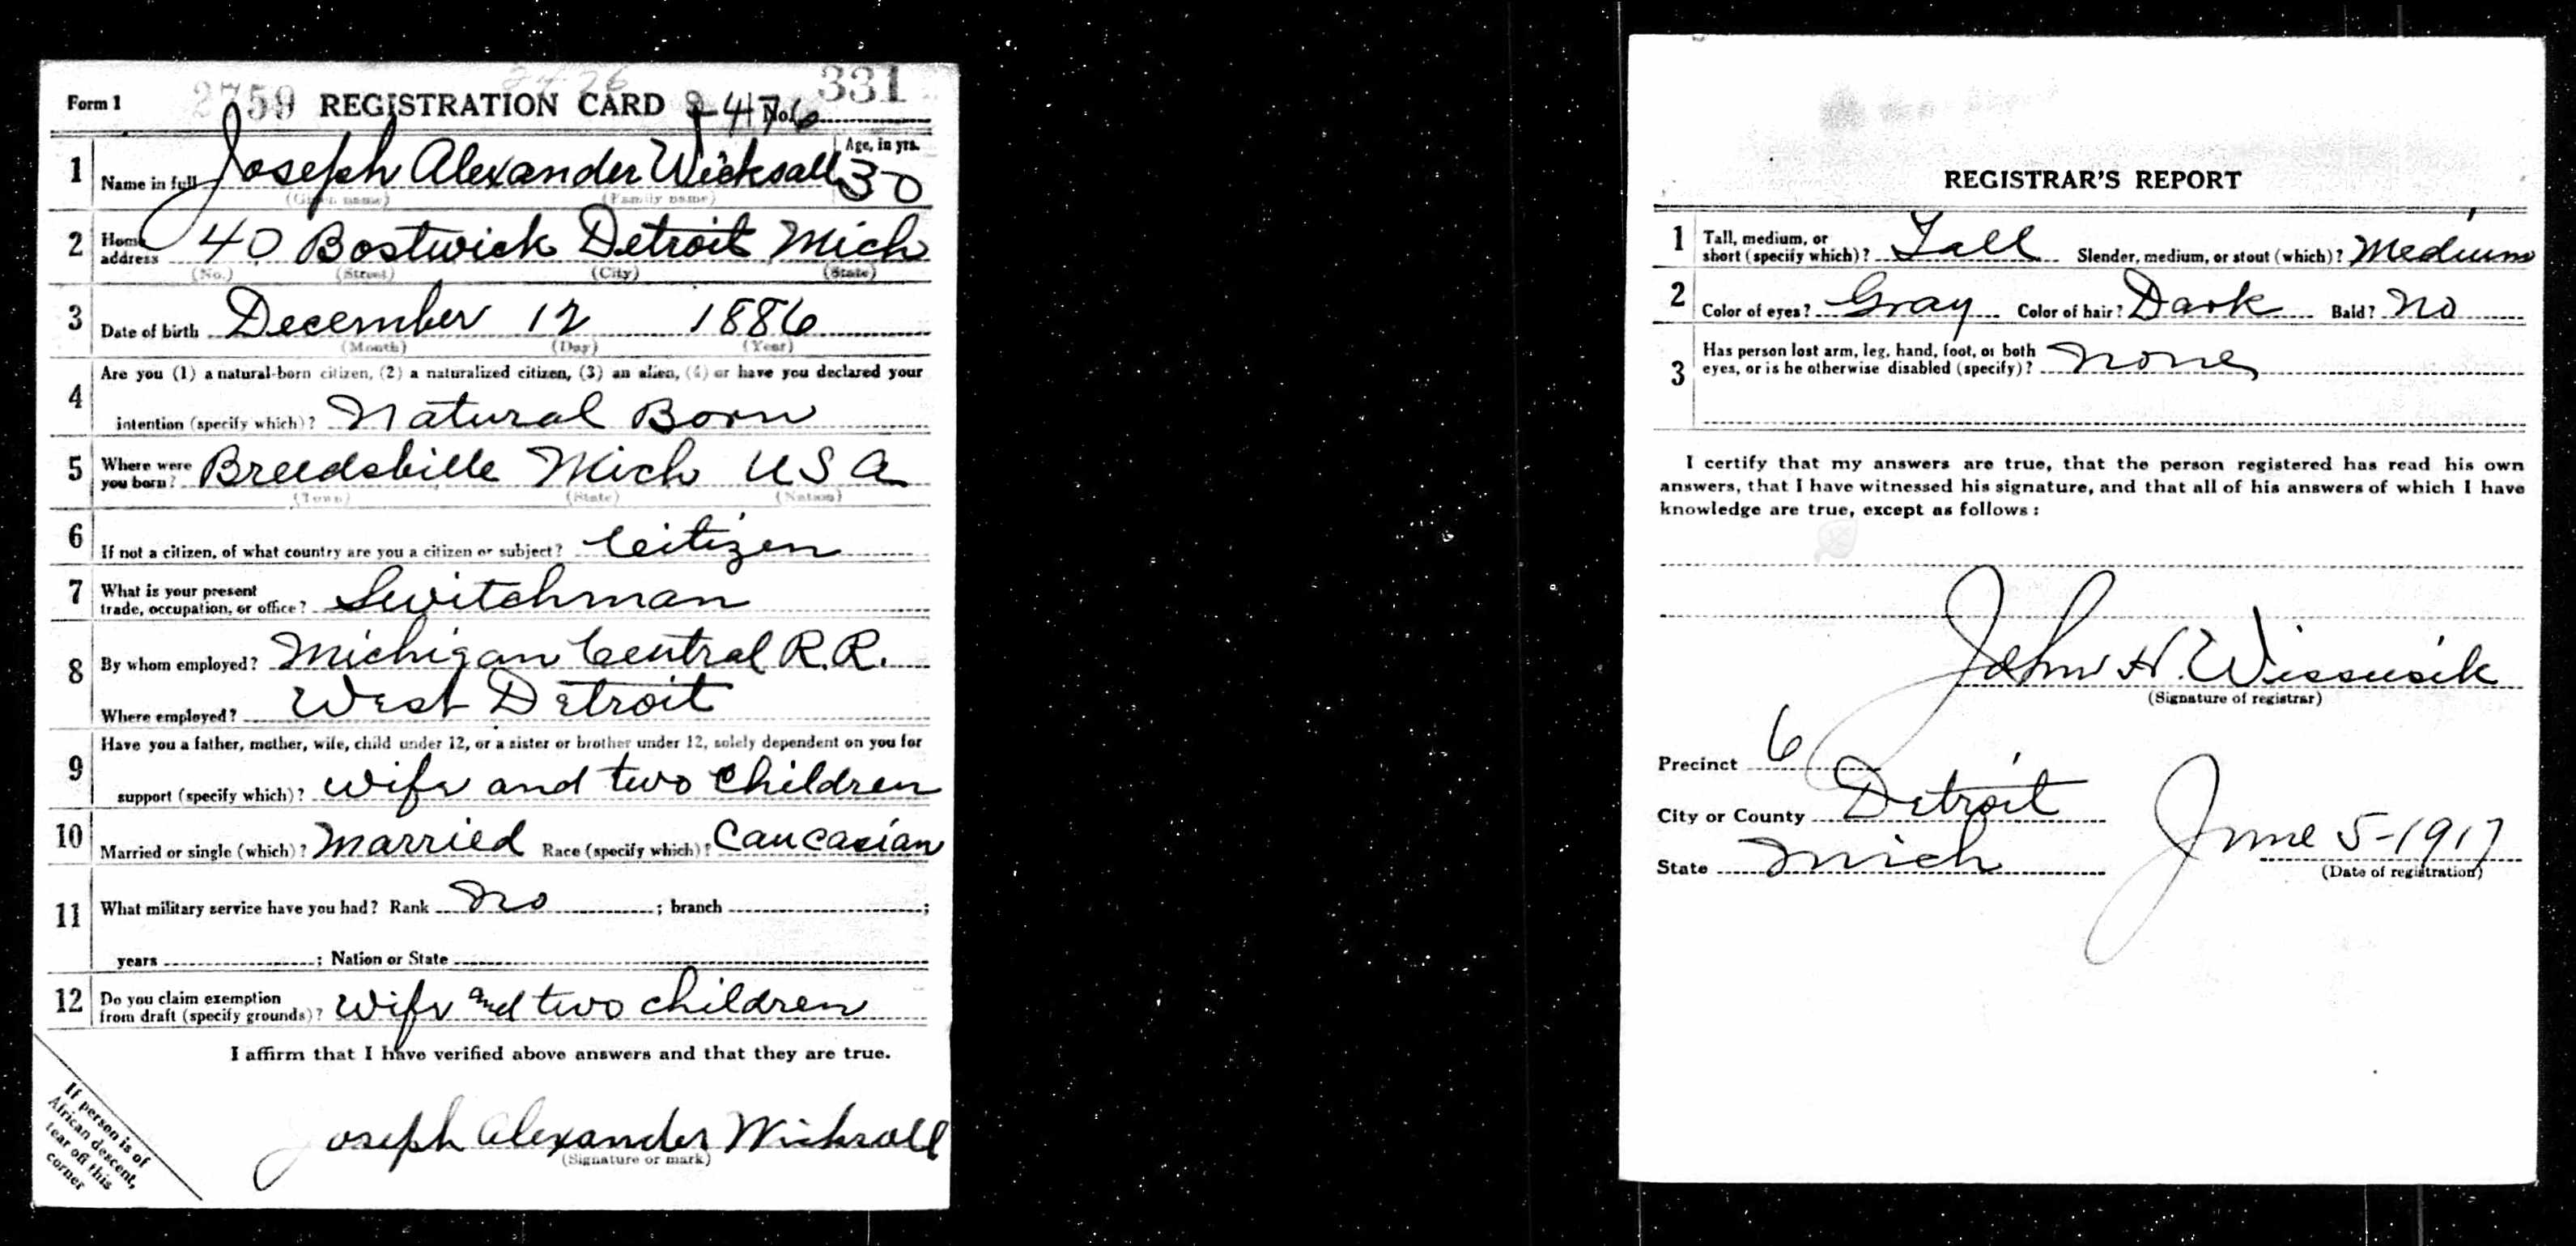 Form 1 2759 REGISTRATION CARD No. 2476 331
1 Name in full Joseph Alexander Wicksall Age, in yrs. 30
(Given name) (Family name)
2 Home address 40 Bostwick Detroit Mich
(No.) (Street) (City) (State)
3 Date of birth December 12 1886
(Month) (Day) (Year)
4 Are you (1) a natural-born citizen, (2) a naturalized citizen, (3) an alien, (4) or have you declared your
intention (specify which)? Natural Born
5 Where were you born? Breedsbille Mich USA
(Town) (State) (Nation)
6 If not a citizen, of what country are you a citizen or subject? Citizen
7 What is your present
trade, occupation, or office? Switchman
8 By whom employed? Michigan Central R.R.
Where employed? West Detroit
9 Have you a father, mother, wife, child under 12, or a sister or brother under 12, solely dependent on you for
support (specify which)? wife and two children
10 Married or single (which)? Married Race (specify which)? Caucasian
11 What military service have you had? Rank no ; branch ;
years ; Nation or State
12 Do you claim exemption
from draft (specify grounds)? wife and two children
I affirm that I have verified above answers and that they are true.
Joseph Alexander Wicksall
(Signature or mark)
If person is of
African descent,
tear off this
corner
REGISTRAR'S REPORT
1 Tall, medium, or
short (specify which)? Tall Slender, medium, or stout (which)? Medium
2 Color of eyes? Gray Color of hair? Dark Bald? No
3 Has person lost arm, leg, hand, foot, or both
eyes, or is he otherwise disabled (specify)? none
I certify that my answers are true, that the person registered has read his own
answers, that I have witnessed his signature, and that all of his answers of which I have
knowledge are true, except as follows:
John H.
(Signature of registrar)
Precinct 6
City or County Detroit
State Mich June 5-1917
(Date of registration)